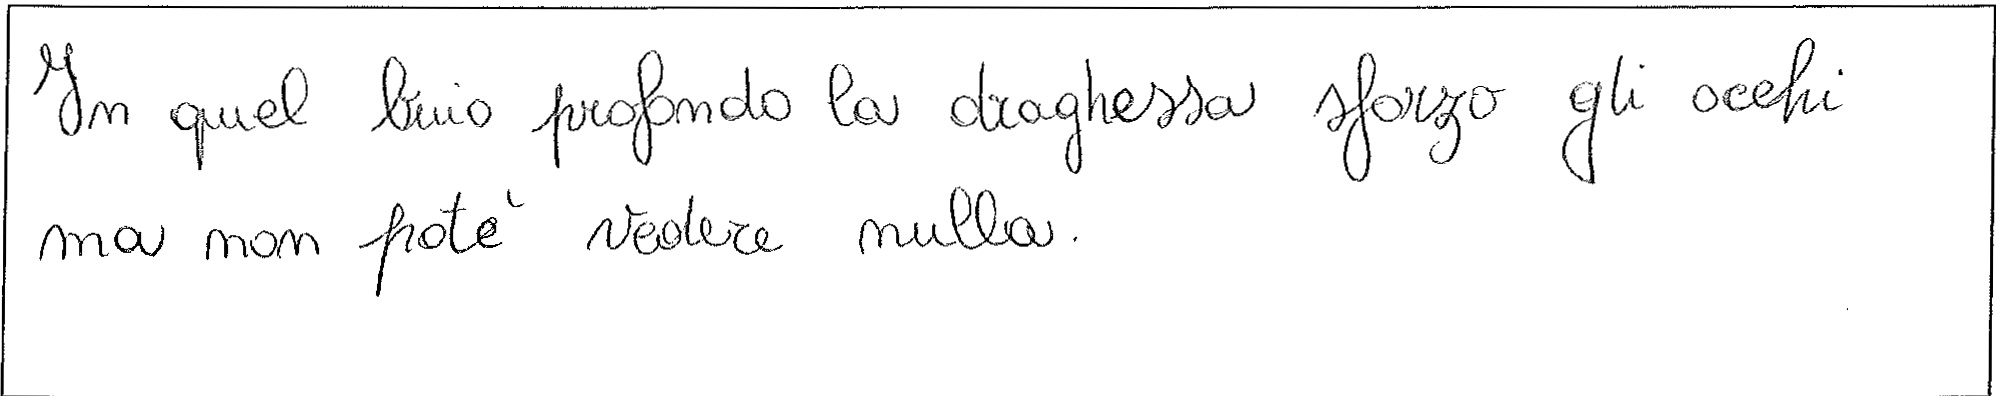 In quel buio profondo la draghessa sforzo gli occhi
ma non potè vedere nulla.